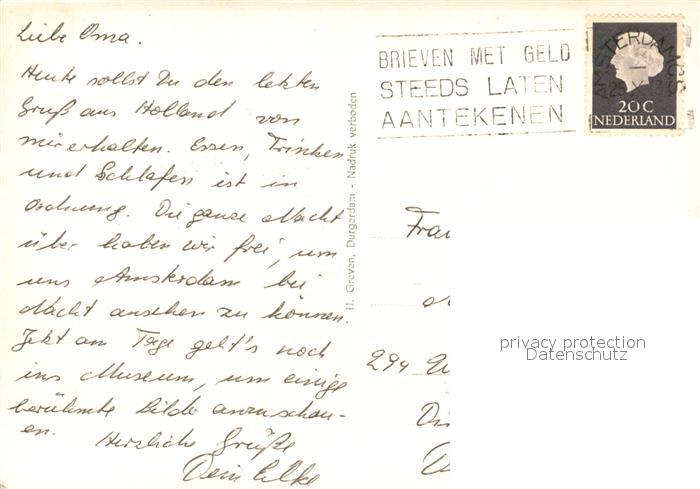 Liebe Oma.
Heute sollst Du den letzten
Gruß aus Holland von
mir erhalten. Essen, Trinken
und Schlafen ist in
Ordnung. Die ganze Nacht
über haben wir frei, um
uns Amsterdam bei
Nacht ansehen zu können.
Jetzt am Tage geht's noch
ins Museum, um einige
berühmte Bilder anzuschau-
en.
Herzliche Grüße
Dein Elke
H. Greven, Durgerdam - Nadruk verboden
BRIEVEN MET GELD
STEEDS LATEN
AANTEKENEN
AMSTERDAM CS
20 C
NEDERLAND
Frau
294
privacy protection
Datenschutz